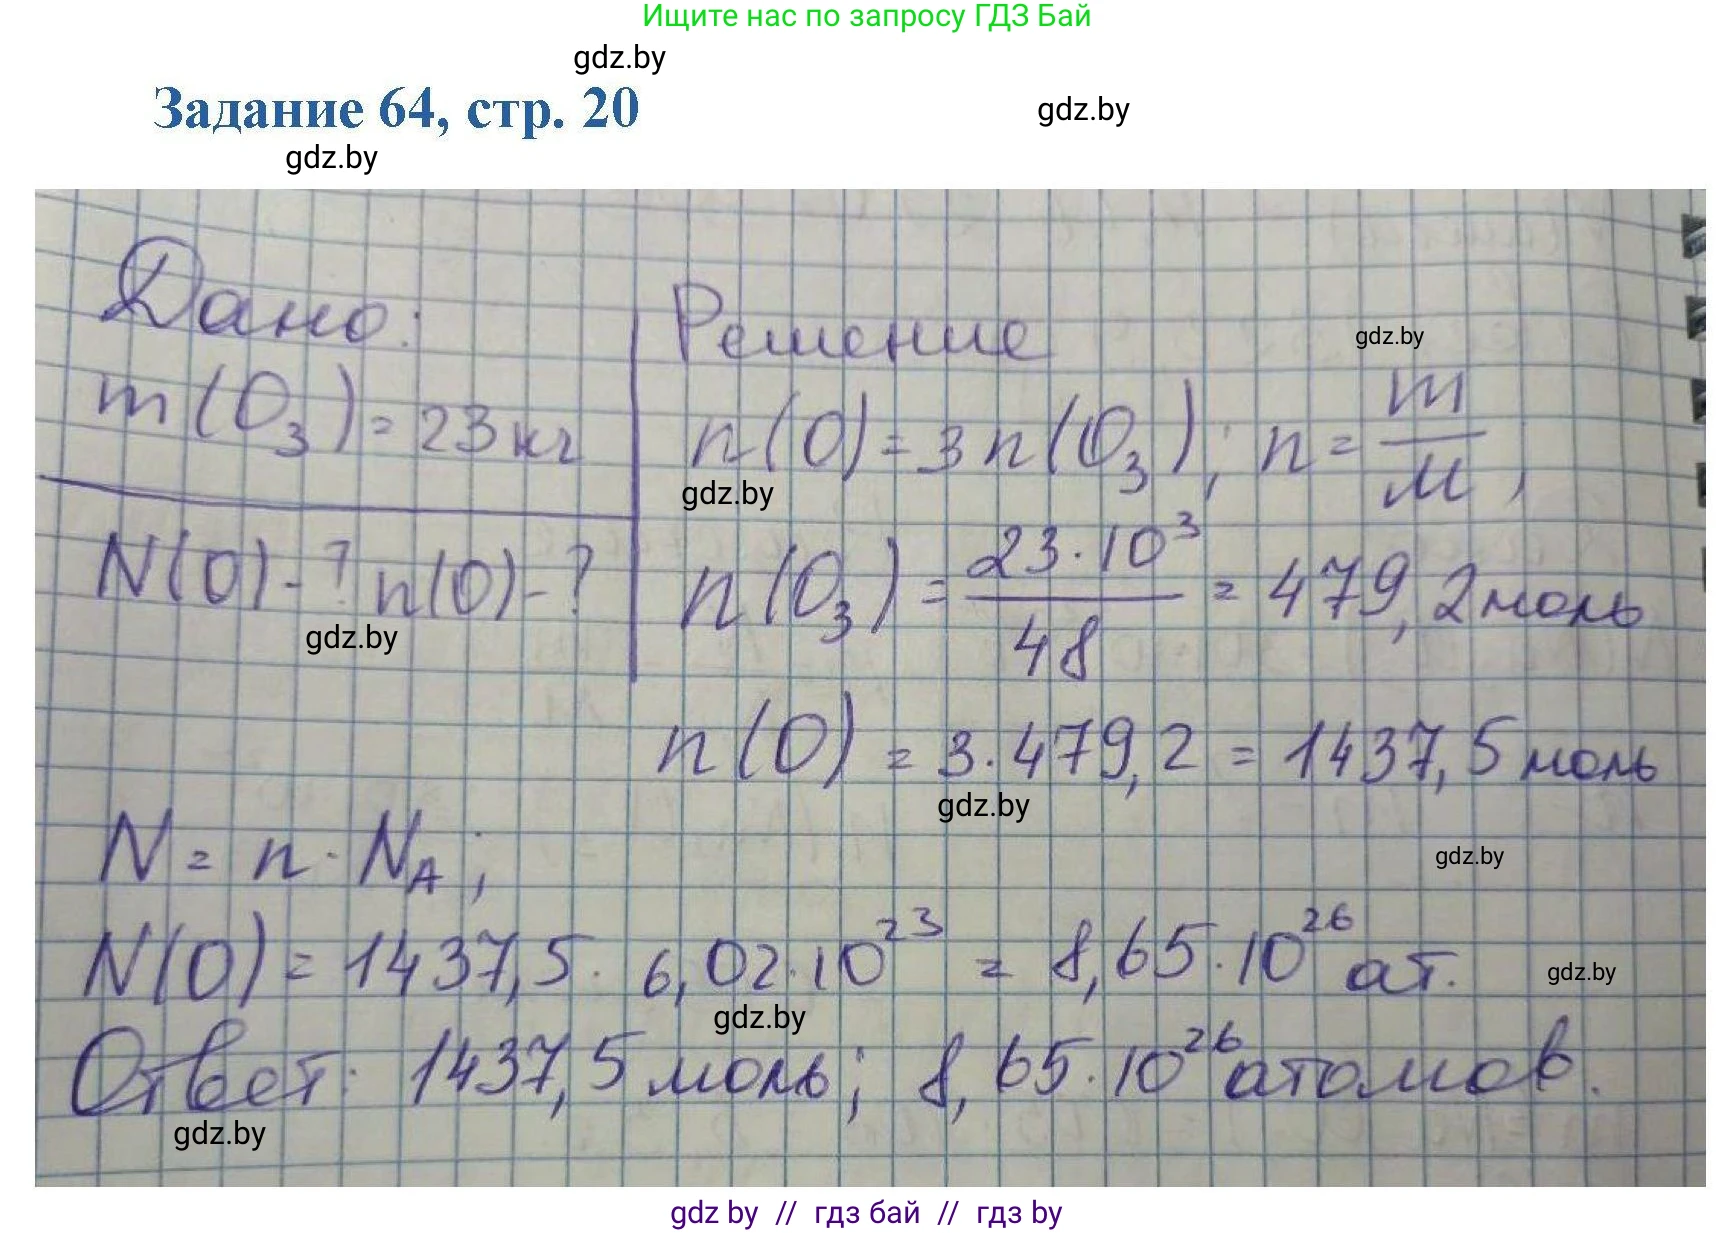 Ищите нас по запросу ГДЗ Бай
gdz.by
Задание 64, стр. 20
gdz.by
gdz.by
Дано:
m(O₃) = 23 кг
N(O) - ? n(O) - ?
gdz.by
Решение
gdz.by
n(O) = 3n(O₃); n = m/M;
gdz.by
n(O₃) = 23·10³/48 = 479,2 моль
n(O) = 3·479,2 = 1437,5 моль
gdz.by
N = n · N_A;
gdz.by
N(O) = 1437,5 · 6,02·10²³ = 8,65·10²⁶ ат.
gdz.by
gdz.by
Ответ: 1437,5 моль; 8,65·10²⁶ атомов.
gdz.by
gdz by // гдз бай // гдз by